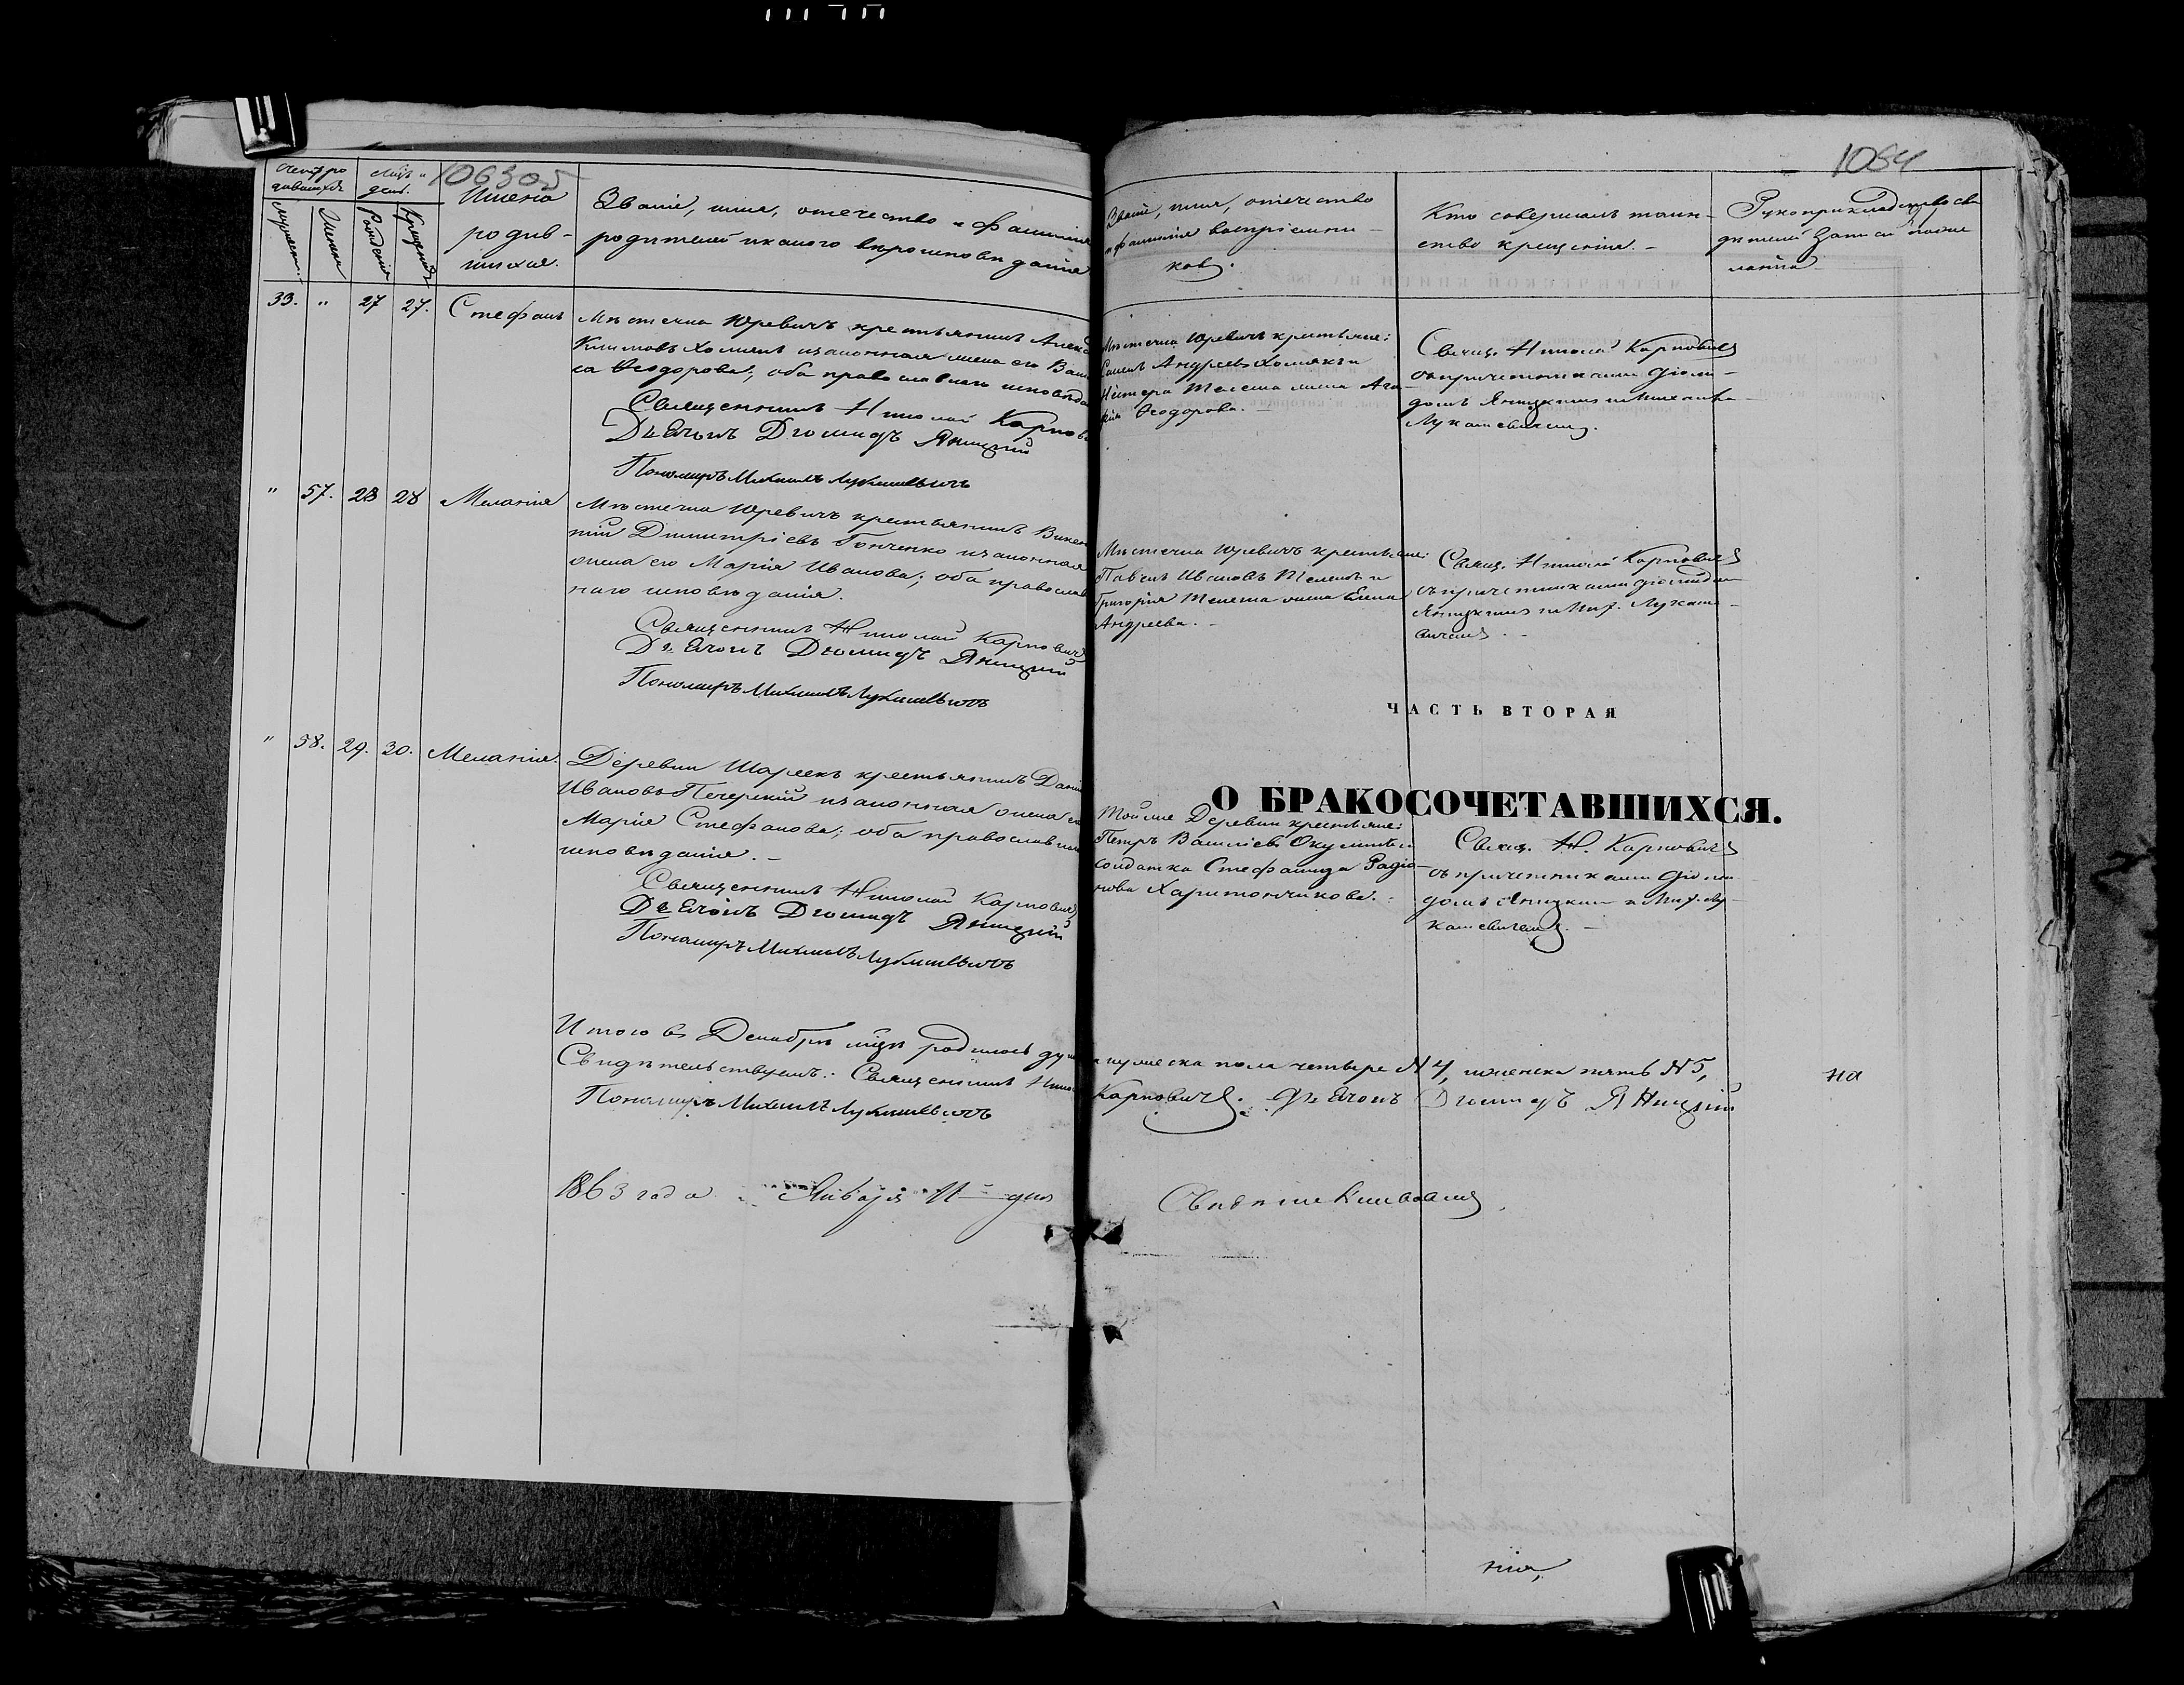 106305
1054
Счетъ ро
дившихся
Мѣс. и
дни.
Мужеска.
Женска
Рожденія
Крещенія
Имена
родив-
шихся.
Званіе, имя, отечество и фамилія
родителей и какого вѣроисповѣданія
Званіе, имя, отечество
и фамилія воспріемни-
ковъ.
Кто совершалъ таин-
ство крещенія. -
Рукоприкладство сви
дѣтелей записи по же
ланію
33. " 27 27. Стефанъ
Мѣстечка Юревичъ крестьянинъ Алекс
Климовъ Хомякъ и законная жена его Васи
са Ѳеодорова; оба православнаго исповѣда
Священникъ Николай Карпови
Дьячокъ Дiомидъ Яницкiй
Пономарь Михаилъ Лукашевичъ
Мѣстечка Юревичъ крестьяне:
Андреевъ Хомякъ и
Нестера Телеша жена Ага-
Ѳеодорова. -
Свящ. Николай Карповичъ
съ причетниками Дiоми-
домъ Яницкимъ и Михаиломъ
Лукашевичемъ.
" 57. 28 28 Меланія
Мѣстечка Юревичъ крестьянинъ Викен
тій Димитріевъ Гонченко и законная
жена его Марія Иванова; оба православ
наго исповѣданія.
Священникъ Николай Карповичъ
Дьячокъ Дiомидъ Яницкiй
Пономарь Михаилъ Лукашевичъ
Мѣстечка Юревичъ крестьяне:
Павелъ Ивановъ Телешъ и
Григорія Телеша жена Елена
Андреева. -
Свящ. Николай Карповичъ
съ причетниками Дiомидомъ
Яницкимъ и Мих. Лукаше-
вичемъ. -
ЧАСТЬ ВТОРАЯ
О БРАКОСОЧЕТАВШИХСЯ.
" 58. 29. 30. Меланія.
Деревни Шареекъ крестьянинъ Данiи
Ивановъ Печерскій и законная жена его
Марія Стефанова; оба православнаго
исповѣданія. -
Священникъ Николай Карповичъ
Дьячокъ Дiомидъ Яницкiй
Пономарь Михаилъ Лукашевичъ
Той же Деревни крестьяне:
Петръ Васильевъ и
солдатка Стефанида Радіо-
нова Харитончикова. -
Свящ. Н. Карповичъ
съ причетниками Дiоми-
домъ Яницкимъ и Мих. Лу-
кашевичемъ. -
Итого въ Декабрѣ мцѣ родилось душ
мужеска пола четыре № 4, женска пять № 5,
на
Свидѣтельствуемъ: Священникъ Никол
Карповичъ. Дьячокъ Дiомидъ Яницкiй
Пономарь Михаилъ Лукашевичъ
1863 года Января 11 дня
Свидѣтельствовалъ
нія,